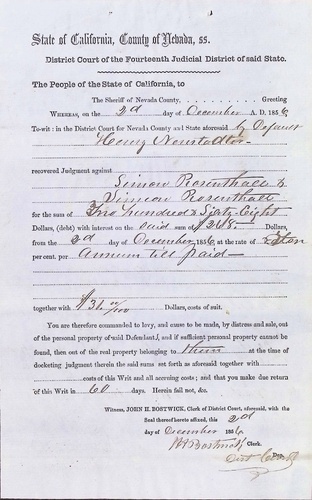 State of California, County of Nevada, ss.
District Court of the Fourteenth Judicial District of said State.
The People of the State of California, to
The Sheriff of Nevada County, . . . . . . . . . . Greeting
WHEREAS, on the 2d day of December A. D. 1856
To-wit: in the District Court for Nevada County and State aforesaid by Default
Henry
recovered Judgment against
Simon Rosenthall &
Rosenthall
for the sum of Two hundred & Sixty-Eight
Dollars, (debt) with interest on the said sum of $268.— Dollars,
from the 2d day of December 1856 at the rate of
per cent. per Annum till paid—
together with $ 00/100 Dollars, costs of suit.
You are therefore commanded to levy, and cause to be made, by distress and sale, out
of the personal property of said Defendant s, and if sufficient personal property cannot be
found, then out of the real property belonging to them at the time of
docketing judgment therein the said sums set forth as aforesaid together with
costs of this Writ and all accruing costs; and that you make due return
of this Writ in 60 days. Herein fail not, &c.
Witness, JOHN H. BOSTWICK, Clerk of District Court, aforesaid, with the
Seal thereof hereto affixed, this 2d
day of December 1856
Bostwick Clerk.
Dep.